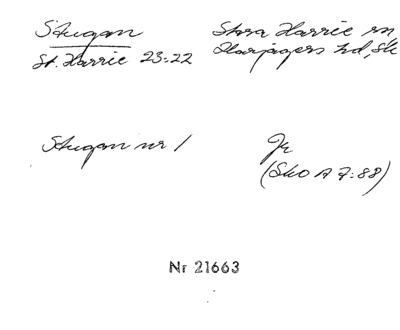 Stugan Stora Harrie sn
St. Harrie 23:22 Harjagers hd, Sk
Stugan nr 1 Jr
(SkO A 7:88)
Nr 21663